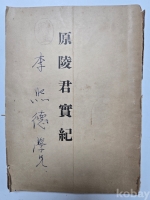 原陵君實紀
李熙德學兄
kobay